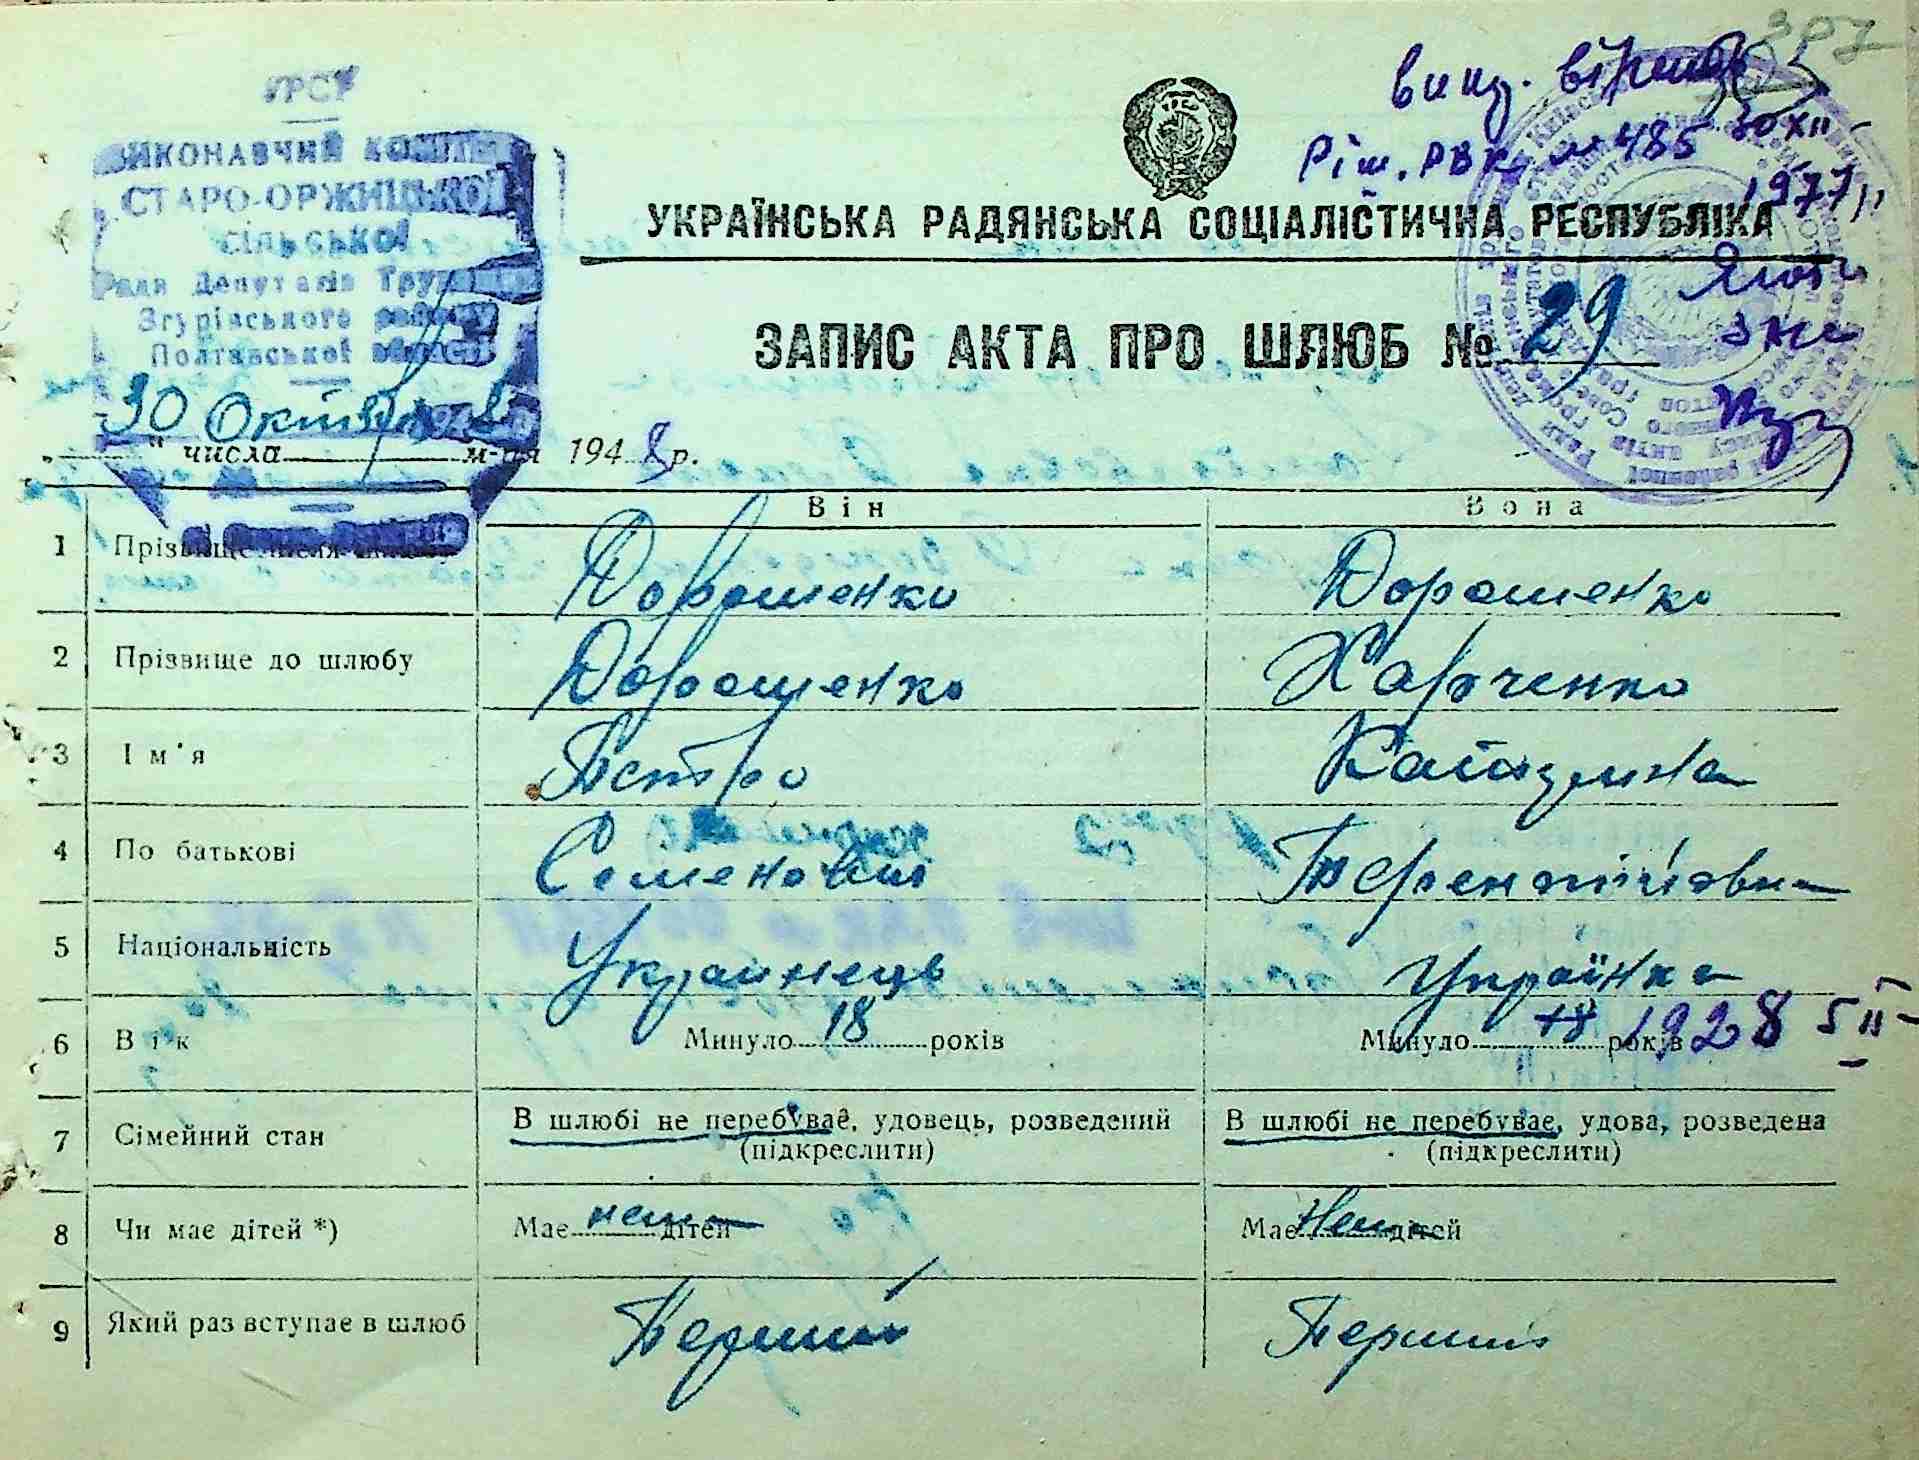 УРСР
ВИКОНАВЧИЙ КОМІТЕТ
СТАРО-ОРЖИЦЬКОЇ
СІЛЬСЬКОЇ
Ради Депутатів Трудящих
Згурівського району
Полтавської області
307
вип. вірно
Ріш. РВК № 485 30 XII
1977 р
УКРАЇНСЬКА РАДЯНСЬКА СОЦІАЛІСТИЧНА РЕСПУБЛІКА
ЗАПИС АКТА ПРО ШЛЮБ № 29
30 Октября
" числа м-ця 1948 р.
Він Вона
1 Прізвище після шлюбу Дорошенко Дорошенко
2 Прізвище до шлюбу Дорошенко Харченко
3 Ім'я Петро Катерина
4 По батькові Семенович Терентіївна
5 Національність Украинець Українка
6 Вік Минуло 18 років Минуло 18 років 1928 5 II
7 Сімейний стан В шлюбі не перебуває, удовець, розведений В шлюбі не перебуває, удова, розведена
(підкреслити) (підкреслити)
8 Чи має дітей *) Має нема дітей Має Нема дітей
9 Який раз вступає в шлюб Перший Перший